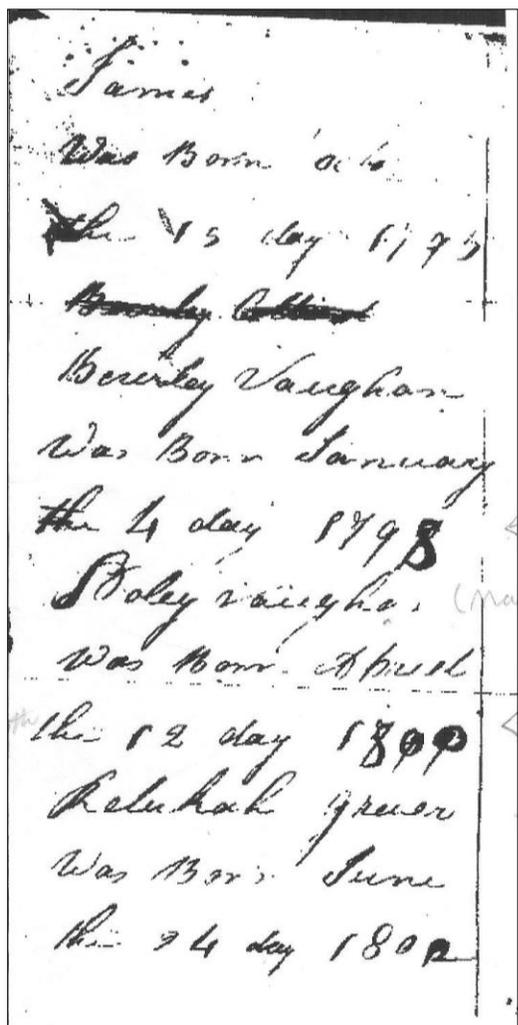 James
Was Born
the 15 day 179
Beverley Vaughan
Was Born January
the 4 day 1798
vaughan
Was Born Aprel
the 12 day 1800
Rebekah greer
Was Born June
the 24 day 1802